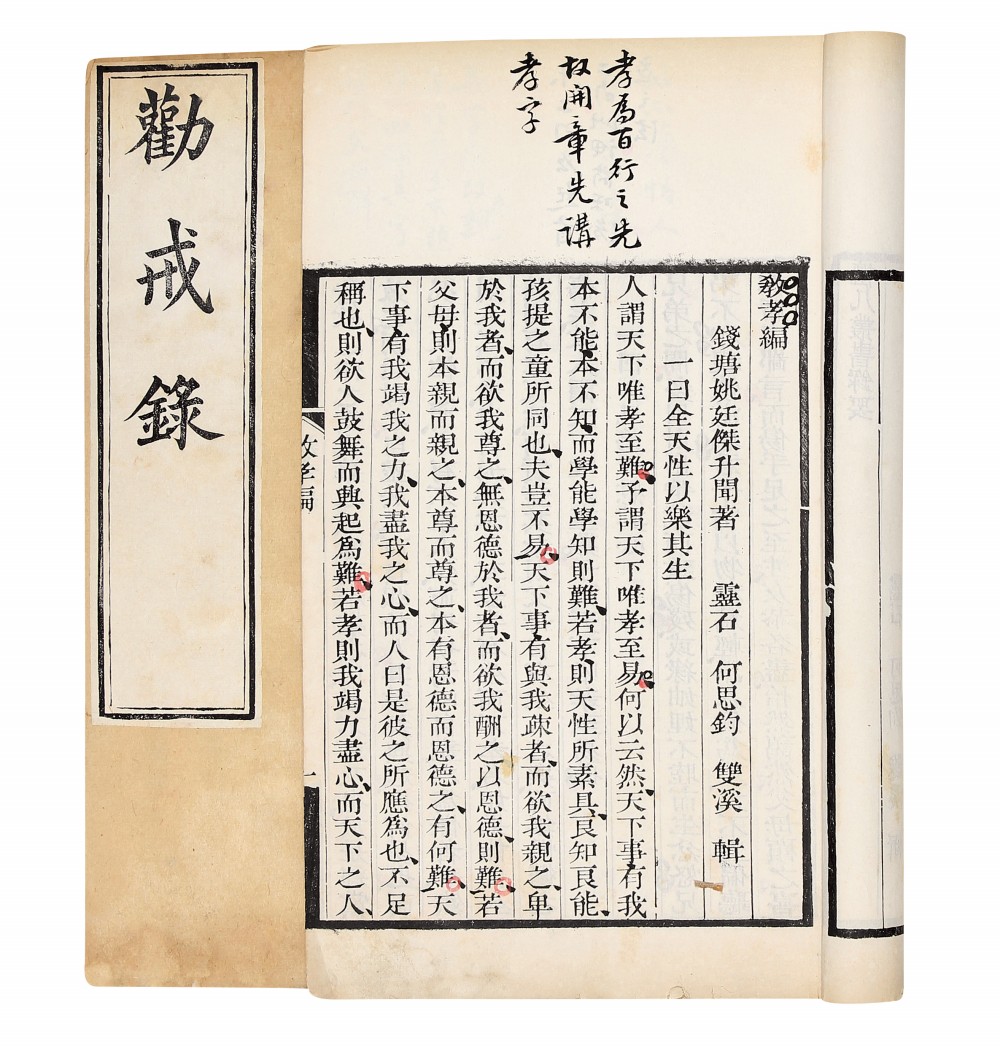 孝為百行之先
故開章先講
孝字
敎孝編
錢塘姚廷傑升聞著 靈石 何思鈞 雙溪 輯
一曰全天性以樂其生
人謂天下唯孝至難予謂天下唯孝至易何以云然天下事有我
本不能本不知而學能學知則難若孝則天性所素具良知良能
孩提之童所同也夫豈不易天下事有與我疎者而欲我親之卑
於我者而欲我尊之無恩德於我者而欲我酬之以恩德則難若
父母則本親而親之本尊而尊之本有恩德而恩德之有何難天
下事有我竭我之力我盡我之心而人曰是彼之所應爲也不足
稱也則欲人鼓舞而興起爲難若孝則我竭力盡心而天下之人
敎孝編
一
勸戒錄